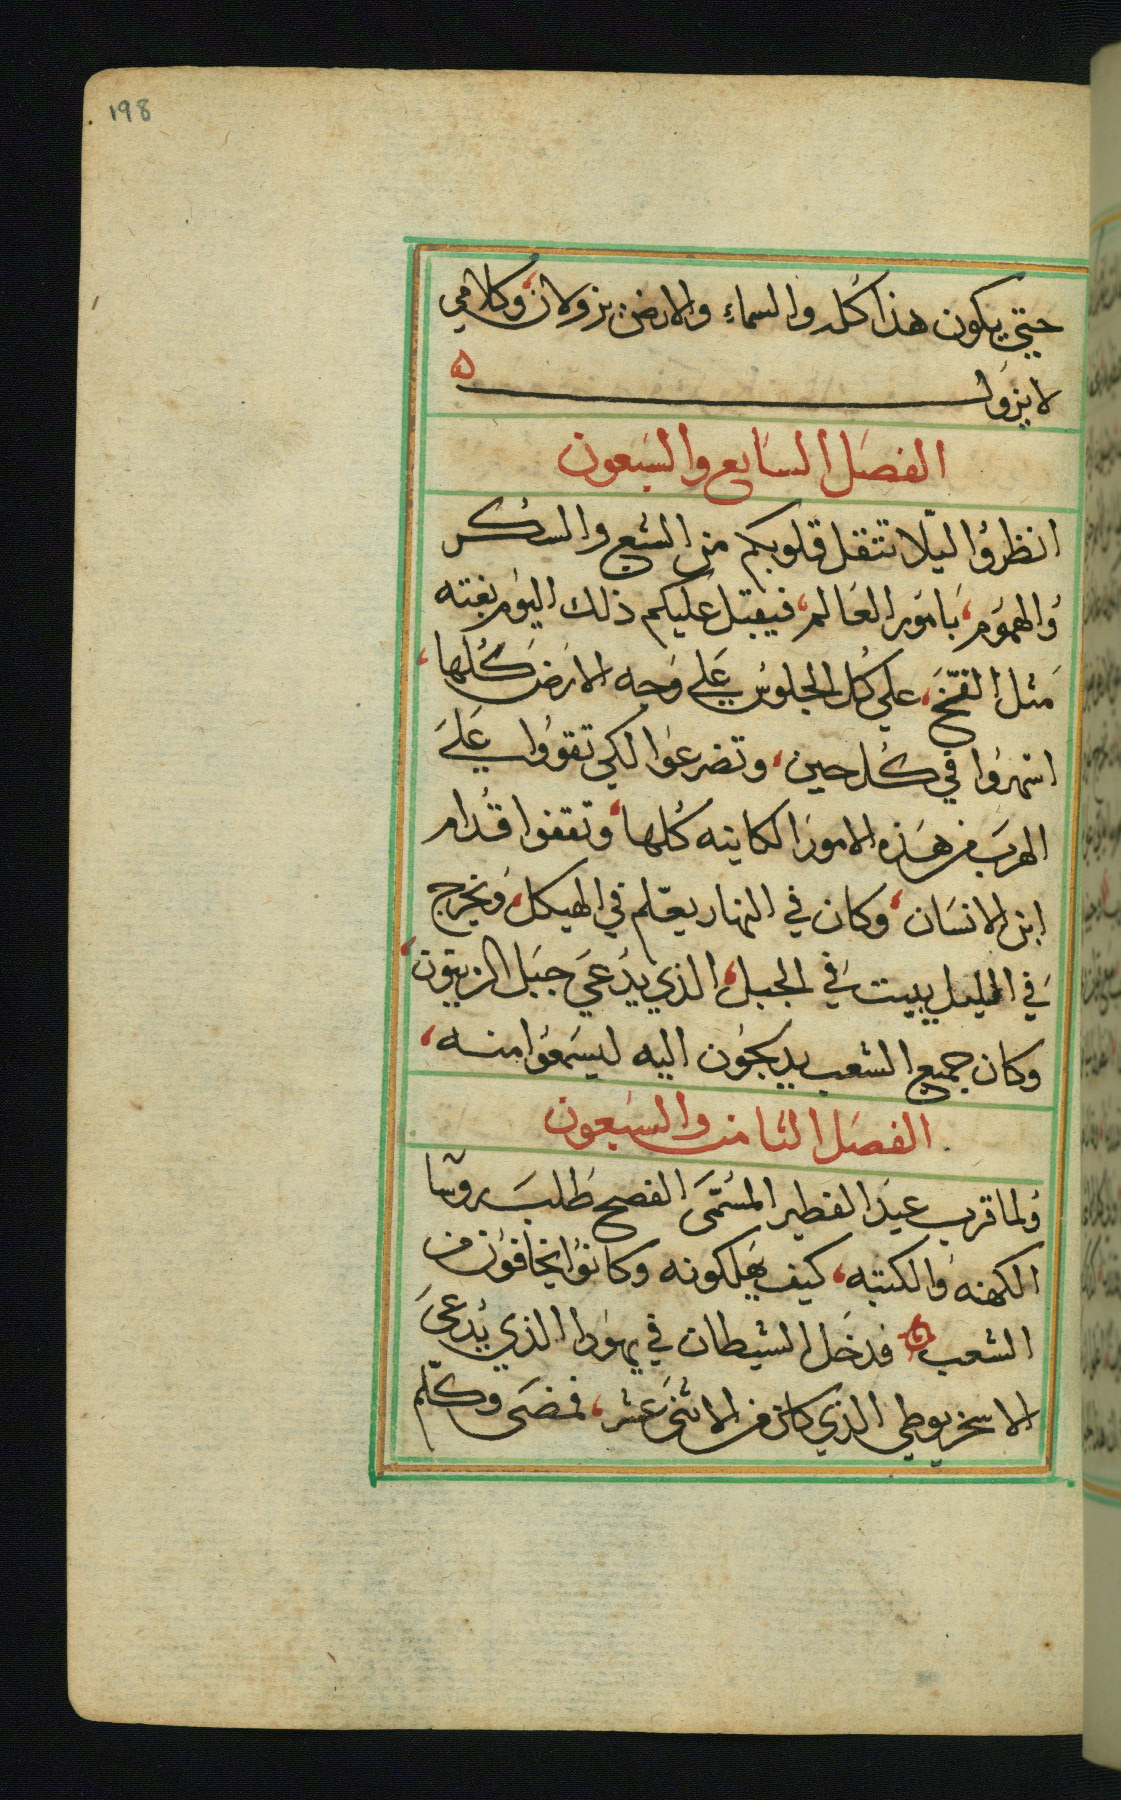 198
حتي يكون هذا كله والسماء والارض يزولان، وكلامي
لا يزول ه
الفصل السابع والسبعون
انظروا ليلا تثقل قلوبكم من الشبع والسكر
والهموم، بامور العالم، فيقبل عليكم ذلك اليوم بغته
مثل الفخ، علي كل الجلوس علي وجه الارض كلها،
اسهروا في كل حين، وتضرعوا لكي تقووا علي
الهرب من هذه الامور الكاينه كلها، وتقفوا قدام
ابن الانسان، وكان في النهار يعلم في الهيكل، ويخرج
في الليل يبيت في الجبل، الذي يدعي جبل الزيتون،
وكان جميع الشعب يدلجون اليه ليسمعوا منه،
الفصل الثامن والسبعون
ولما قرب عيد الفطير المسمى الفصح طلب روسا
الكهنه والكتبه، كيف يهلكونه وكانوا يخافون من
الشعب فدخل الشيطان في يهودا الذي يدعى
الاسخريوطي الذي كان من الاثنى عشر، فمضى وكلم